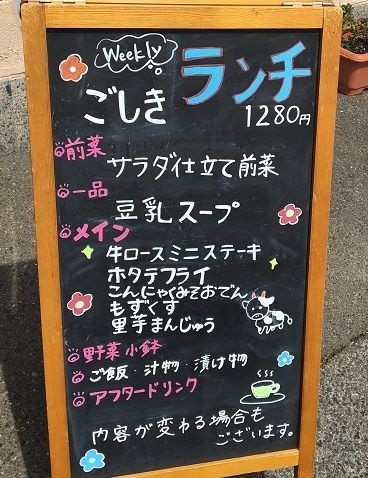 Weekly
ごしき ランチ
1280円
前菜
サラダ仕立て前菜
一品
豆乳スープ
メイン
牛ロースミニステーキ
ホタテフライ
こんにゃくみそおでん
もずくす
里芋まんじゅう
野菜小鉢
ご飯・汁物・漬け物
アフタードリンク
内容が変わる場合も
ございます。